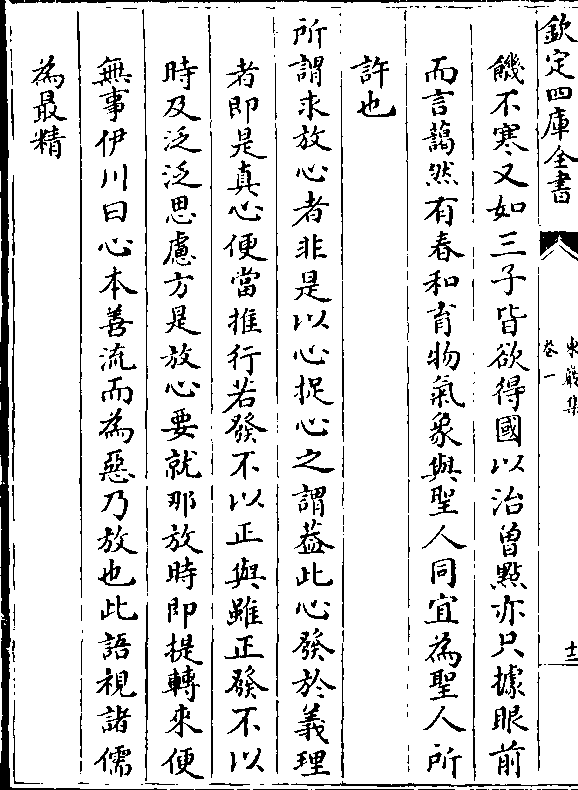 欽定四庫全書
東巖集
卷一
十三
饑不寒又如三子皆欲得國以治曾㸃亦只據眼前
而言藹然有春和育物氣象與聖人同宜為聖人所
許也
所謂求放心者非是以心捉心之謂葢此心發於義理
者即是真心便當推行若發不以正與雖正發不以
時及泛泛思慮方是放心要就那放時即提轉來便
無事伊川曰心本善流而為惡乃放也此語視諸儒
為最精